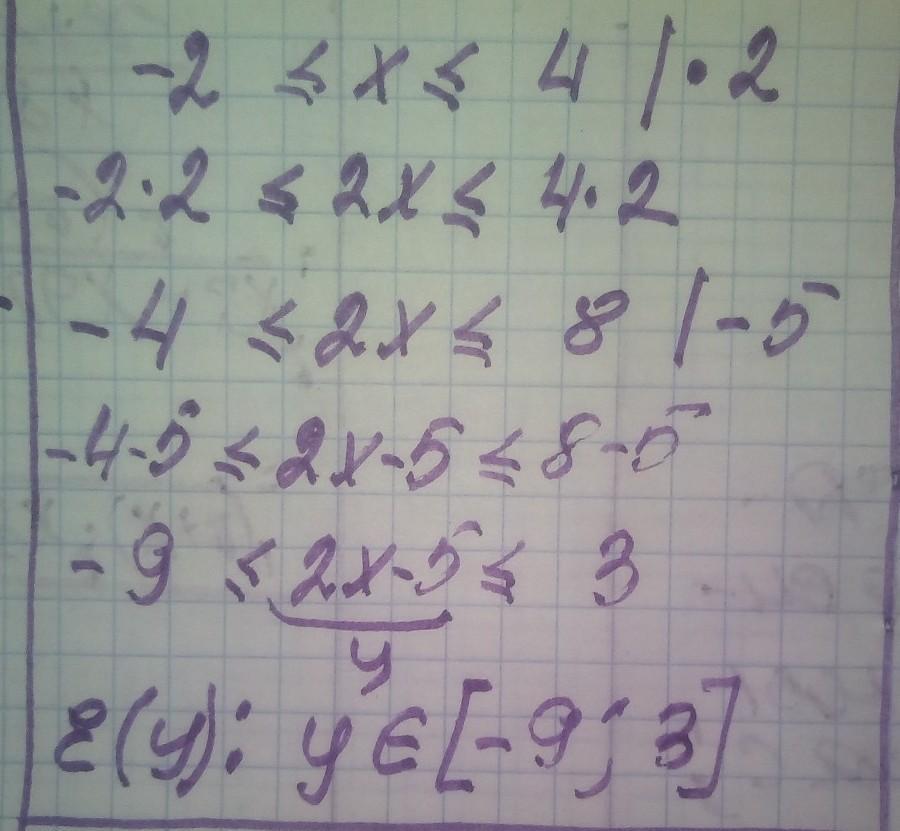 -2 ≤ x ≤ 4 | · 2
-2·2 ≤ 2x ≤ 4·2
-4 ≤ 2x ≤ 8 | -5
-4-5 ≤ 2x-5 ≤ 8-5
-9 ≤ 2x-5 ≤ 3
y
E(y): y∈[-9; 3]